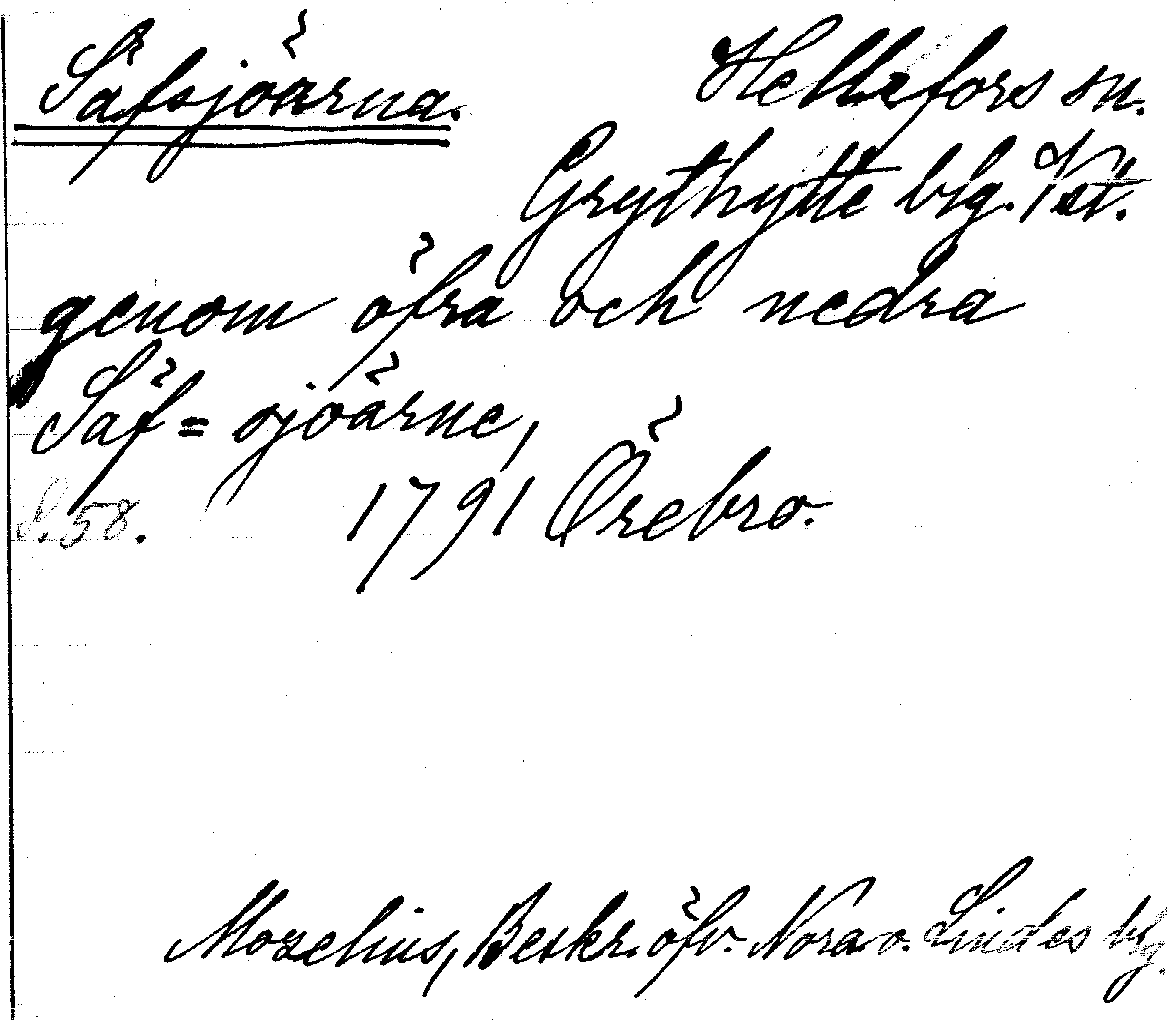 Säfsjöärna. Hellefors sn.
Grythytte blg. Vst.
genom öfra och nedra
Säf= sjöärne,
S. 58. 1791 Örebro.
Mozelius, Beskr. öfv. Nora o. Lindes blg.